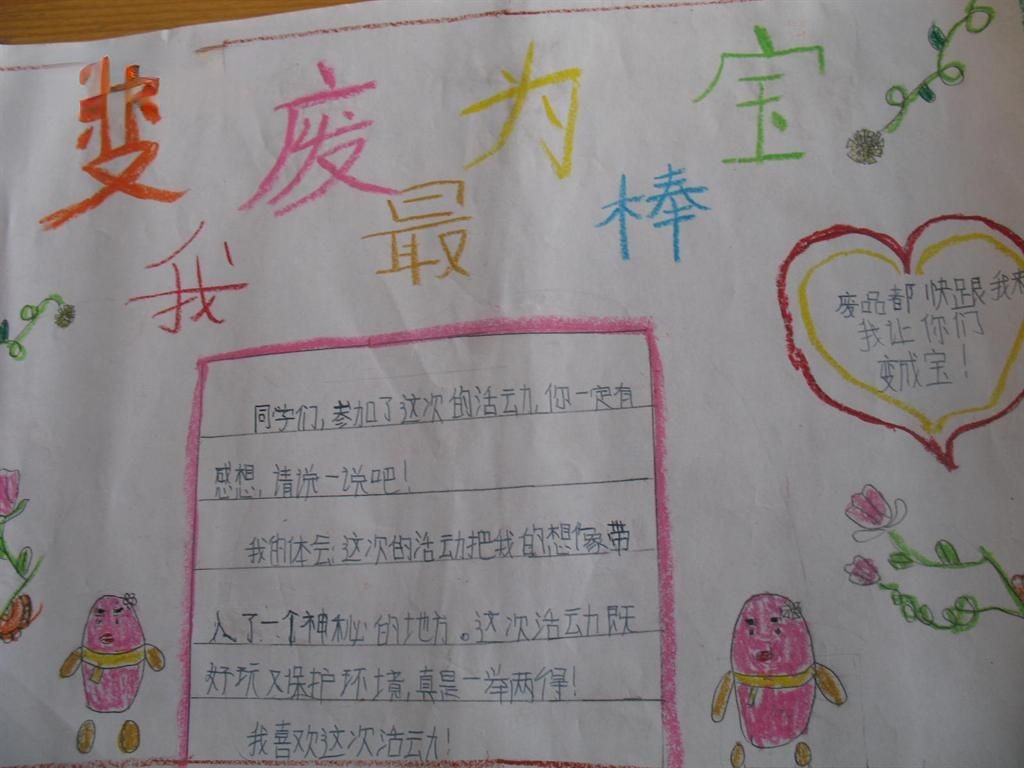 变废为宝
我最棒
废品都快跟我来
我让你们
变成宝！
同学们,参加了这次的活动,你一定有
感想,请说一说吧!
我的体会:这次的活动把我的想像带
入了一个神秘的地方。这次活动既
好玩又保护环境,真是一举两得!
我喜欢这次活动!